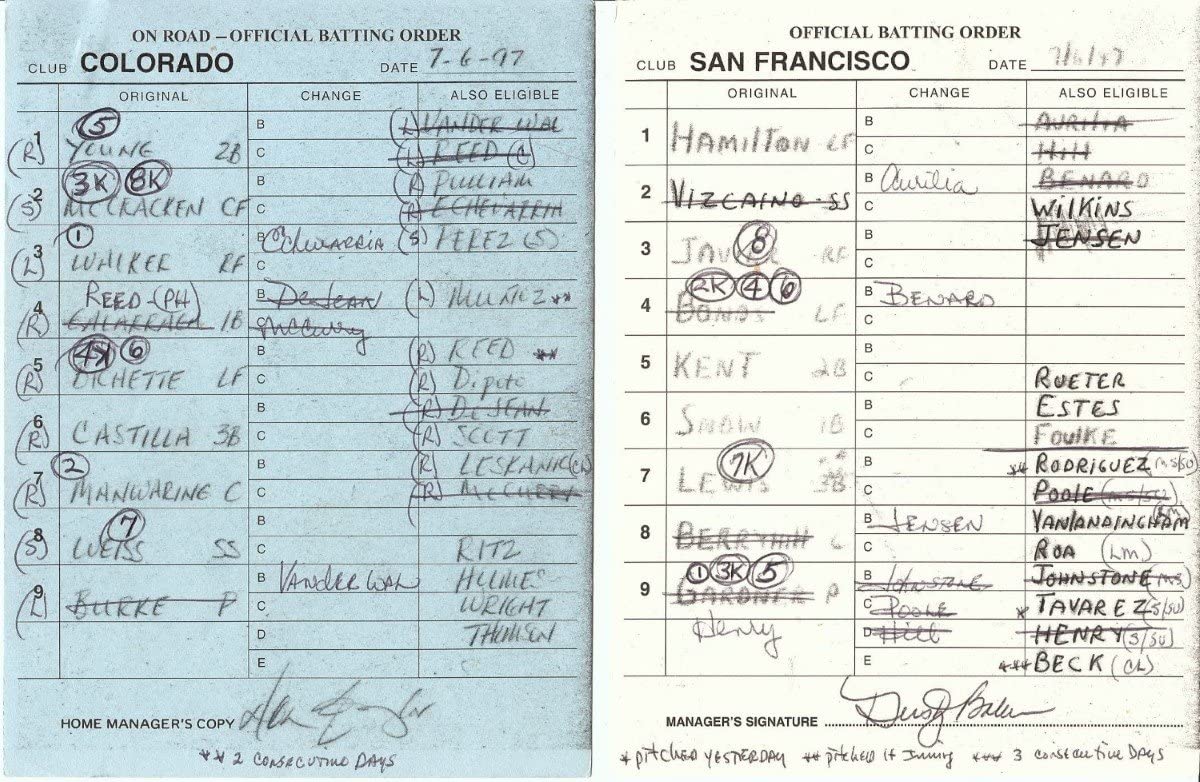 ON ROAD – OFFICIAL BATTING ORDER
CLUB COLORADO DATE 7-6-97
ORIGINAL CHANGE ALSO ELIGIBLE
5 B (L) VANDER WAL
1 (R) YOUNG 2B C (L) REED (L)
3K 8K B (R) PULLIAM
2 (S) MCCRACKEN CF C (R) ECHEVARRIA
1 B Echevarria (S) PEREZ (S)
3 (L) WALKER RF C
REED-(PH) B DeJean (L) MUNOZ **
4 (R) GALARRAGA 1B C McCurry
4K 6 B (R) REED **
5 (R) BICHETTE LF C (R) Dipoto
B (R) DEJEAN
6 (R) CASTILLA 3B C (R) SCOTT
2 B (R) LESKANIC
7 (R) MANWARING C C (R) MCCURRY
7 B
8 (S) WEISS SS C RITZ
B VANDER WAL HOLMES
9 (L) BURKE P C WRIGHT
D THOMSON
E
HOME MANAGER'S COPY Don Baylor
** 2 CONSECUTIVE DAYS
OFFICIAL BATTING ORDER
CLUB SAN FRANCISCO DATE 7/6/97
ORIGINAL CHANGE ALSO ELIGIBLE
B AURILIA
1 HAMILTON CF C HILL
B Aurilia BENARD
2 VIZCAINO - SS C WILKINS
8 B JENSEN
3 JAVIER RF C
2K 4 6 B BENARD
4 BONDS LF C
B
5 KENT 2B C RUETER
B ESTES
6 SNOW 1B C FOULKE
7K B ** RODRIGUEZ (MS/SU)
7 LEWIS 3B C POOLE (MS/SU)
B JENSEN VANLANDINGHAM
8 BERRYHILL C C ROA (LM)
1 3K 5 B JOHNSTONE JOHNSTONE (MS)
9 GARDNER P C POOLE * TAVAREZ (S/SU)
Henry D Hill HENRY (S/SU)
E *** BECK (CL)
MANAGER'S SIGNATURE Dusty Baker
* pitched YESTERDAY ** pitched 1+ Inning *** 3 consecutive DAYS